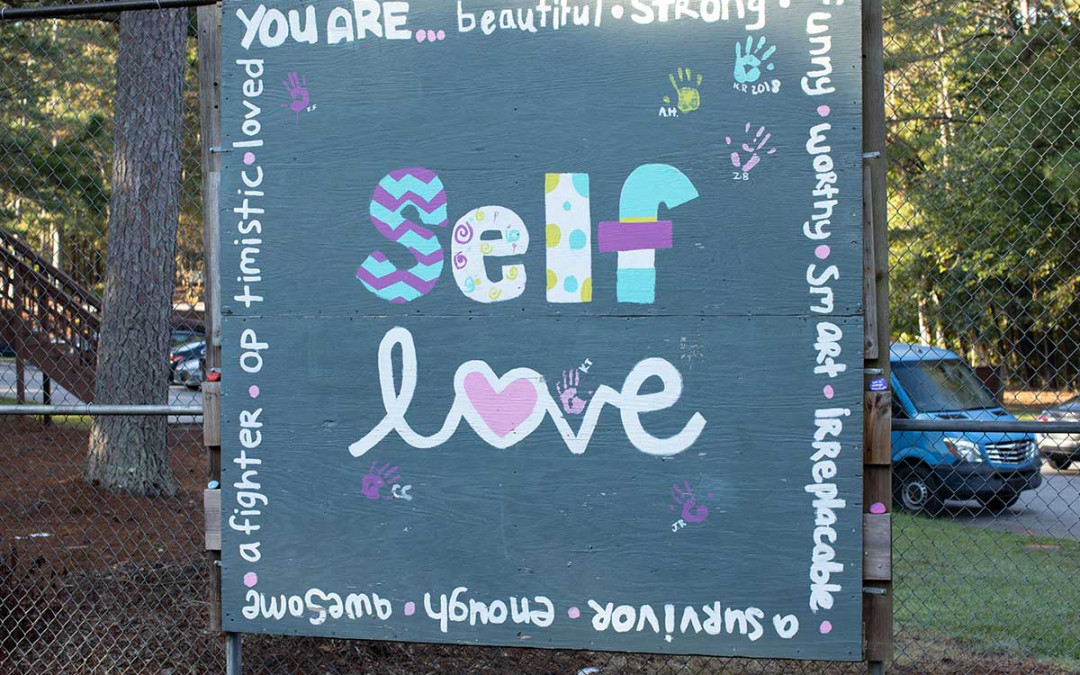 YOU ARE... beautiful • STRONG •
funny • worthy • Smart • irreplacable •
a survivor • enough • awesome
• a fighter • optimistic • loved
F.F
A.H.
K.R 2018
ZB
Self
love
K.T
CC
J.R